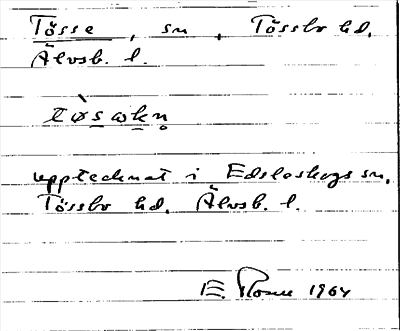 Tösse, sn, Tössbo hd,
Älvsb. l.
tø̀sɷkn̥
upptecknat i Edsleskogs sn,
Tössbo hd. Älvsb. l.
E. 1964